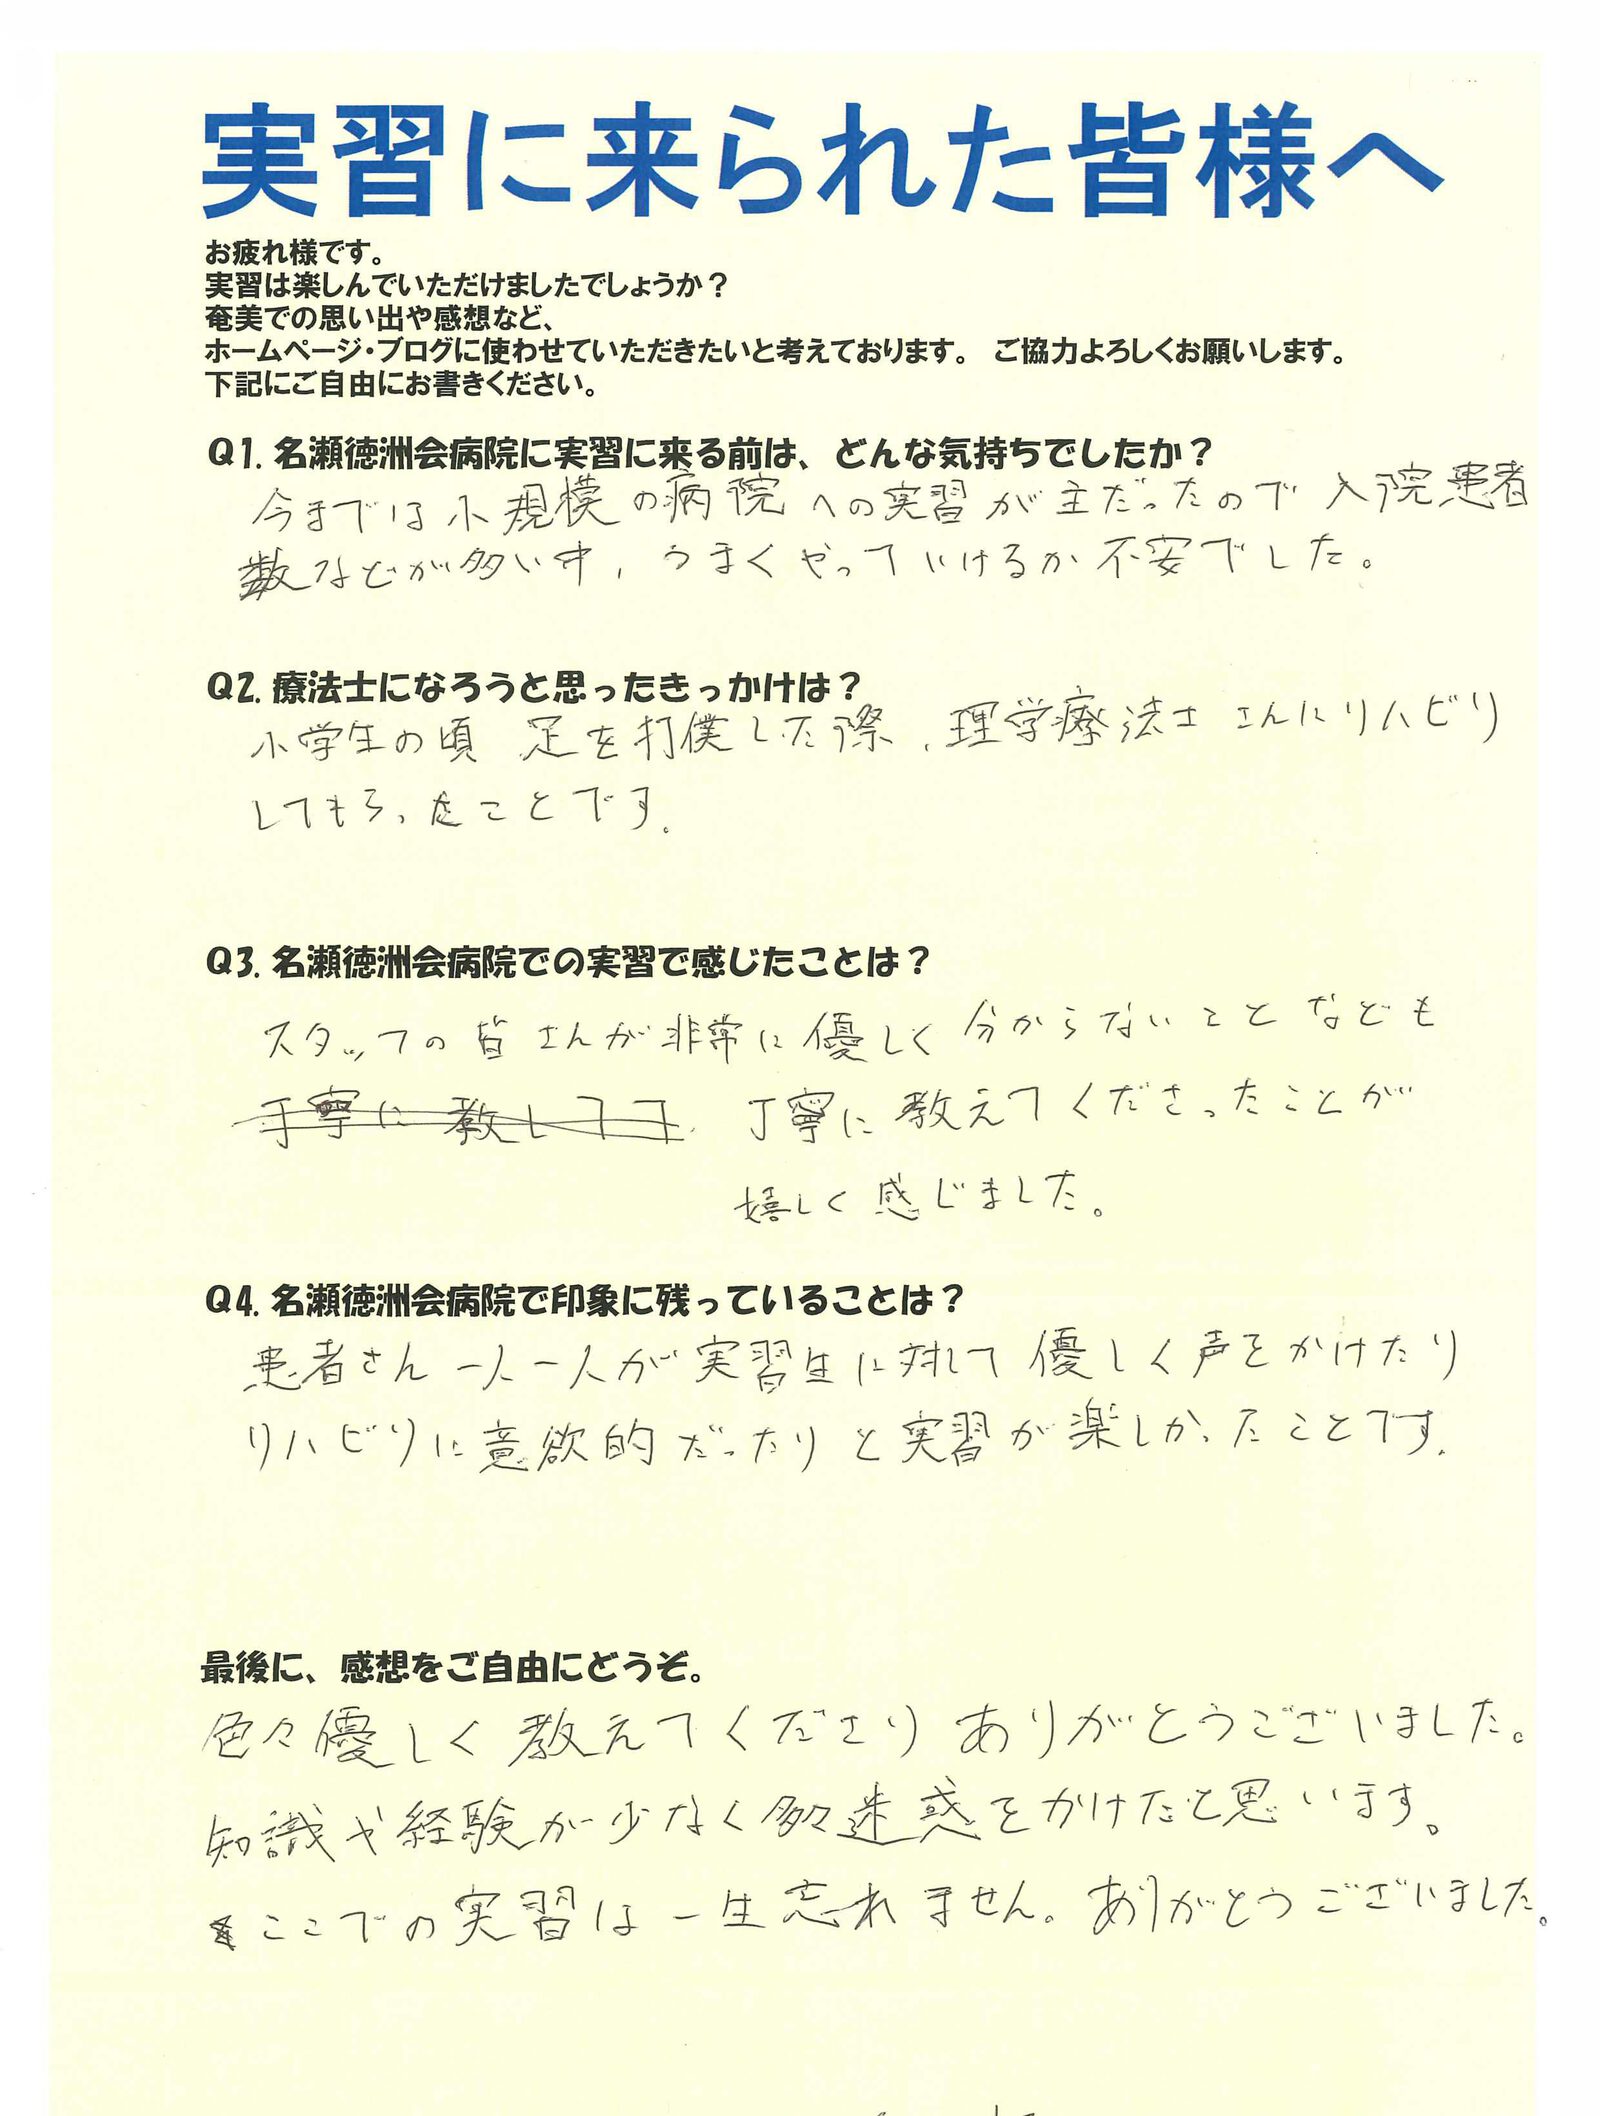 実習に来られた皆様へ
お疲れ様です。
実習は楽しんでいただけましたでしょうか？
奄美での思い出や感想など、
ホームページ・ブログに使わせていただきたいと考えております。　ご協力よろしくお願いします。
下記にご自由にお書きください。
Q1. 名瀬徳洲会病院に実習に来る前は、どんな気持ちでしたか？
今までは小規模の病院への実習が主だったので入院患者
数などが多い中、うまくやっていけるか不安でした。
Q2. 療法士になろうと思ったきっかけは？
小学生の頃 足を打僕した際、理学療法士さんにリハビリ
してもらったことです。
Q3. 名瀬徳洲会病院での実習で感じたことは？
スタッフの皆さんが非常に優しく分からないことなども
丁寧に教えてくださったことが
嬉しく感じました。
Q4. 名瀬徳洲会病院で印象に残っていることは？
患者さん一人一人が実習生に対して優しく声をかけたり
リハビリに意欲的だったりと実習が楽しかったことです。
最後に、感想をご自由にどうぞ。
色々優しく教えてくださりありがとうございました。
知識や経験が少なく多々迷惑をかけたと思います。
ここでの実習は一生忘れません。ありがとうございました。